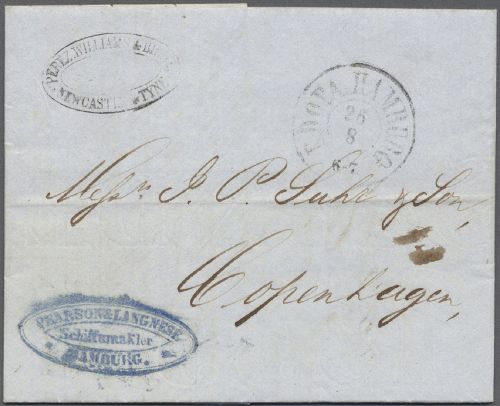 PEREZ, WILLIAMS &
NEWCASTLE TYNE
K.D.O.P.A. HAMBURG
26
8
6-7
Messrs J. P. Suhr & Son,
Copenhagen,
PEARSON & LANGNESE
Schiffsmakler
HAMBURG.